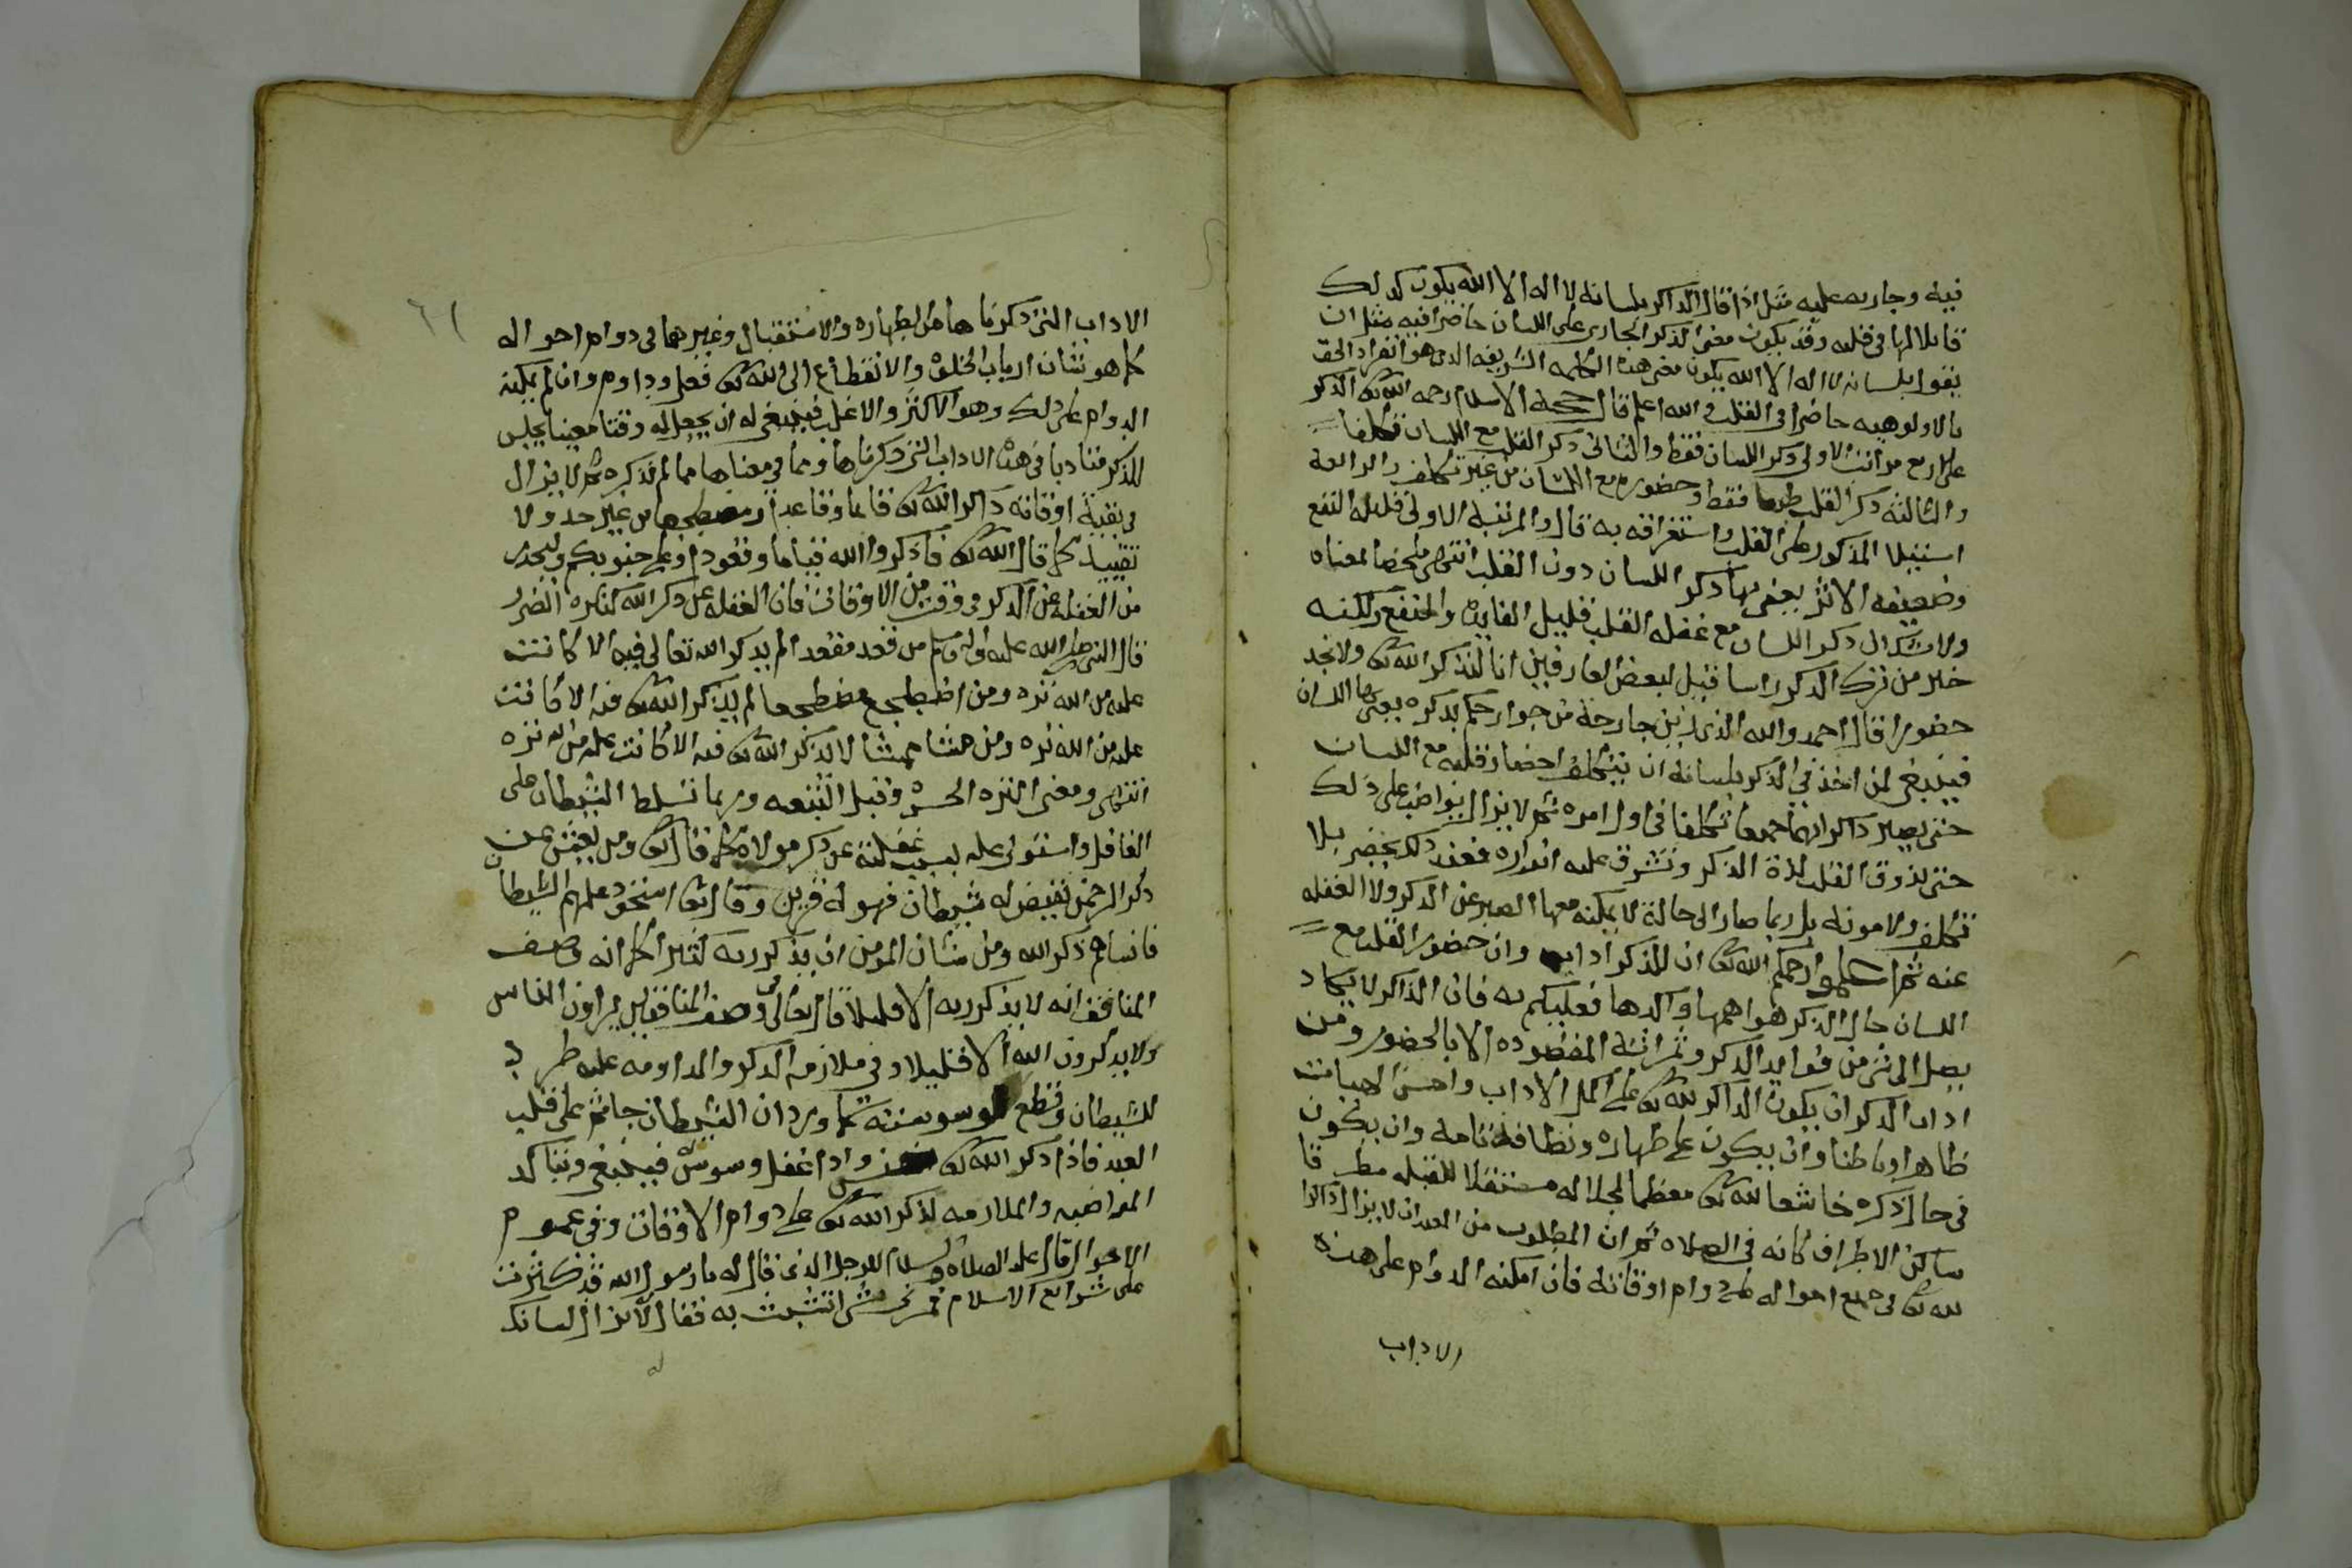 فيه وجاريه عليه مثل اذا قال الذاكر بلسانه لا اله الا الله يكون كذلك
قابلا لها في قلبه وقد يكون معنى الذكر الجاري على اللسان حاضرا فيه مثل ان
يقول بلسانه لا اله الا الله يكون معنى هذه الكلمه الشريفه الذي هو انفراد الحق
بالالوهيه حاضرا في القلب والله اعلم قال حجة الاسلام رحمه الله تعالى الذكر
على اربع مراتب الاولى ذكر اللسان فقط والثاني ذكر القلب مع اللسان تكلفا
والثالثه ذكر القلب طبعا فقط وحضوره مع اللسان من غير تكلف والرابعة
استيلا المذكور على القلب واستغراقه به قال والمرتبة الاولى قليلة النفع
وضعيفه الاثر يعني بها ذكر اللسان دون القلب انتهى ملخصا لمعناه
ولا شك ان ذكر اللسان مع غفله القلب قليل الفايده والمنفع ولكنه
خير من ترك الذكر راسا قيل لبعض العارفين انا لنذكر الله تعالى ولا نجد
حضورا قال احمدوا الله الذي زين جارحة من جوارحكم بذكره يعني بها اللسان
فينبغي لمن اخذ في الذكر بلسانه ان يتكلف احضار قلبه مع اللسان
حتى يصير ذاكرا بهما جميعا تكلفا في اول امره ثم لا يزال يواضب على ذلك
حتى يذوق القلب لذة الذكر وتشرق عليه انواره فعند ذلك يحضر بلا
تكلف ولا مونة بل ربما صار الى حالة لا يمكنه معها الصبر عن الذكر ولا الغفله
عنه ثم اعلموا رحمكم الله تعالى ان للذكر اداب وان حضور القلب مع
اللسان حال الذكر هو اهمها واكدها فعليكم به فان الذاكر لا يكاد
يصل الى شي من فوايد الذكر وثمراته المقصوده الا بالحضور ومن
اداب الذكر ان يكون الذاكر لله تعالى على اكمل الاداب واحسن الهيات
ظاهرا وباطنا وان يكون على طهاره ونظافة تامة وان يكون
في حال ذكره خاشعا لله تعالى معظما لجلاله مستقبلا للقبله مطرقا
ساكن الاطراف كانه في الصلاه ثم ان المطلوب من العبد ان لا يزال ذاكرا
لله تعالى في جميع احواله على دوام اوقاته فان امكنه الدوام على هذه
الاداب
٦١
الاداب التي ذكرناها من الطهاره والاستقبال وغيرهما في دوام احواله
كما هو شان ارباب الخلوة والانقطاع الى الله تعالى فعل وداوم وان لم يمكنه
الدوام على ذلك وهو الاكثر والاغلب فينبغي له ان يجعل له وقتا معينا يجلس
للذكر متادبا في هذه الاداب التي ذكرناها وما في معناها مما لم نذكره ثم لا يزال
في بقية اوقاته ذاكرا لله تعالى قايما وقاعدا ومضطجعا من غير حد ولا
تقييد كما قال الله تعالى فاذكروا الله قياما وقعودا وعلى جنوبكم وليحذر
من الغفلة عن الذكر في وقت من الاوقات فان الغفله عن ذكر الله كثيره الضرر
قال النبي صلى الله عليه واله وسلم من قعد مقعدا لم يذكر الله تعالى فيه الا كانت
عليه من الله تره ومن اضطجع مضطجعا لم يذكر الله تعالى فيه الا كانت
عليه من الله تره ومن مشا ممشا لا يذكر الله تعالى فيه الا كانت عليه من الله تره
انتهى ومعنى التره الحسرة وقيل التبعه وربما تسلط الشيطان على
الغافل واستولى عليه بسبب غفلته عن ذكر مولاه كما قال تعالى ومن يعش عن
ذكر الرحمن نقيض له شيطان فهو له قرين وقال تعالى استحوذ عليهم الشيطان
فانساهم ذكر الله ومن شان المومن ان يذكر ربه كثيرا كما انه وصف
المنافق انه لا يذكر ربه الا قليلا قال تعالى في وصف المنافقين يراون الناس
ولا يذكرون الله الا قليلا وفي ملازمة الذكر والمداومه عليه طرد
للشيطان وقطع لوسوسته كما ورد ان الشيطان جاثم على قلب
العبد فاذا ذكر الله تعالى خنس واذا غفل وسوس فينبغي وتتاكد
المواضبه والملازمه لذكر الله تعالى على دوام الاوقات وفي عموم
الاحوال قال عليه الصلاه والسلام للرجل الذي قال له يا رسول الله قد كثرت
على شرايع الاسلام فمرني بشي اتشبث به فقال لا يزال لسانك